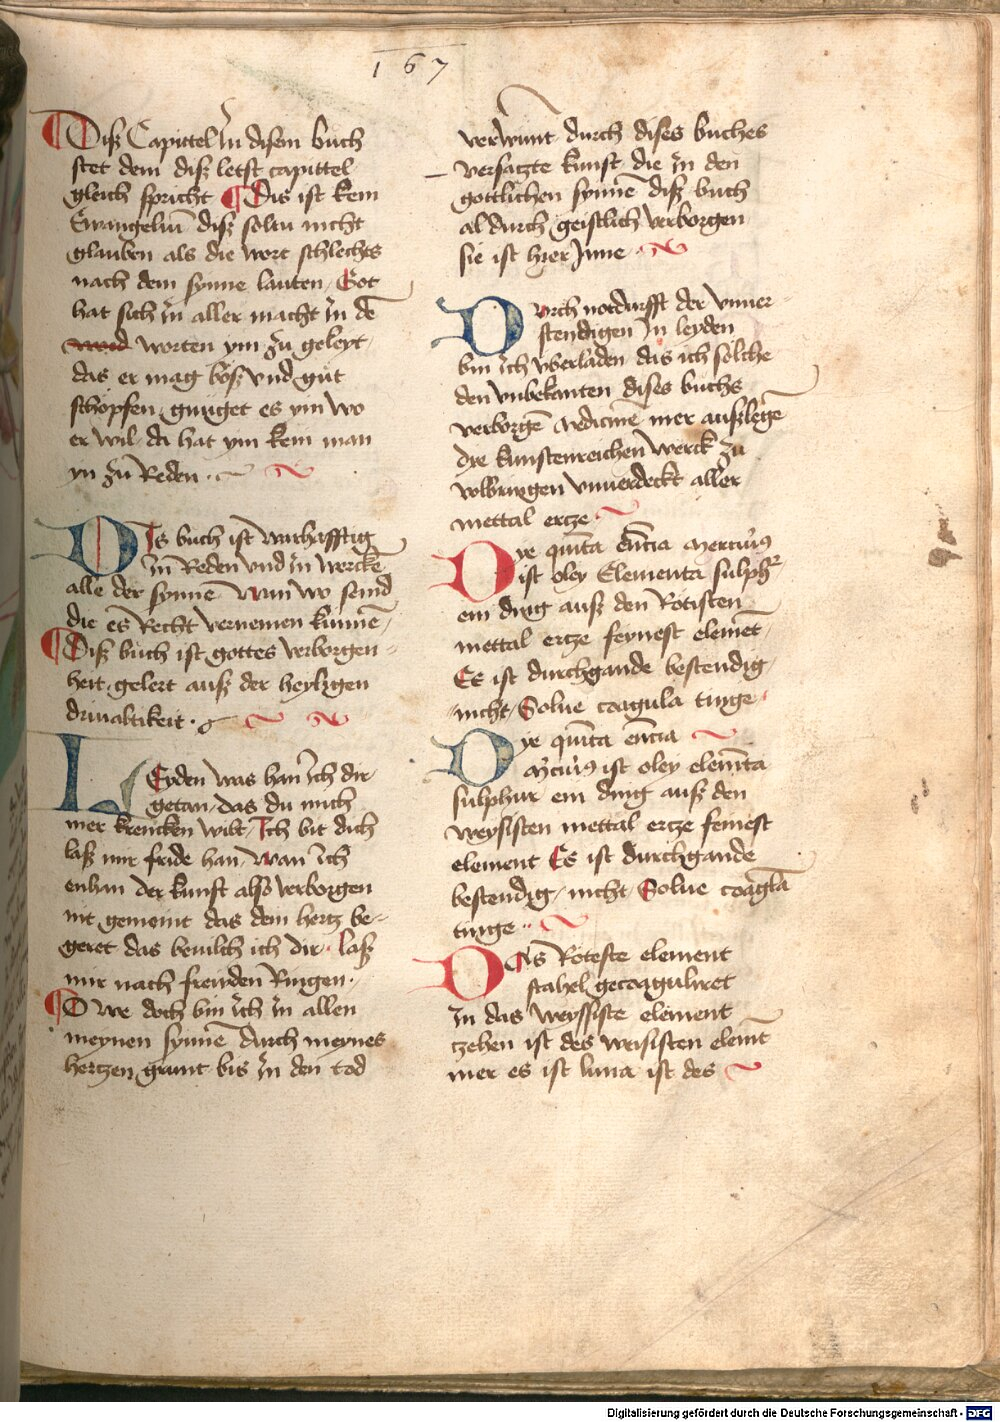 167
¶ Disz Capittel in disem buch
stet dem disz letst capittel
gleich spricht ¶ Dis ist kein
Ewangeliū disz soltu nicht
glauben als die wort schlechts
nach dem synne lauten / Got
hat sich in aller macht in dē
worten ym zu geleyt /
das er mag bösz vnd gut
schöpfen / gnuget es ym wo
er wil da hat ym kein man
yn zu Reden
Dis buch ist warhafftig
in Reden vnd in wercke
alle der synnē wan wo seind
die es Recht vernemen künnē /
¶ Disz buch ist gottes verborgen-
heit / gelert ausz der heyligen
drinaltikeit
LEyden was han ich dir
getan / das du mich
mer krencken wilt / Ich bit dich
lasz mir fride han / wan ich
enhan der kunst also verborgen
nit gemeint das dein hertz be-
geret das beuilch ich dir / lasz
mir nach freuden Ringen
¶ O we doch bin ich in allen
meynen synnē durch meynes
hertzen grunt bis in den tod
verwunt durch dises buches
versatzte kunst die in den
gottlichen synnē disz buch
al durch geistlich verborgen
sie ist hier Inne
Durch notdurfft der vnuer-
stendigen in leyden
bin ich vberladen das ich solche
den vnbekanten dises buchs
verborgē medicinē mer auszlegē
die kunstenreichen werck zu
volbringen vnuerdeckt aller
mettal ertze
Dye quīta encia mercurius
ist oley Elementa sulphur
ein ding ausz den Rotisten
mettal ertze feynest elemēt /
Es ist durchgande bestendig /
nicht / Solue coagula tinge
Dye quīta encia
mercurius ist oley elemēta
sulphur ein ding ausz den
weysisten mettal ertze feinest
element Es ist durchgande
bestendig / nicht / Solue coagla
tinge
DAs Roteste element
stahel gecoaguliret
in das weyssiste element
tzehen ist des weisisten elemt
mer es ist luna ist des
Digitalisierung gefördert durch die Deutsche Forschungsgemeinschaft - DFG